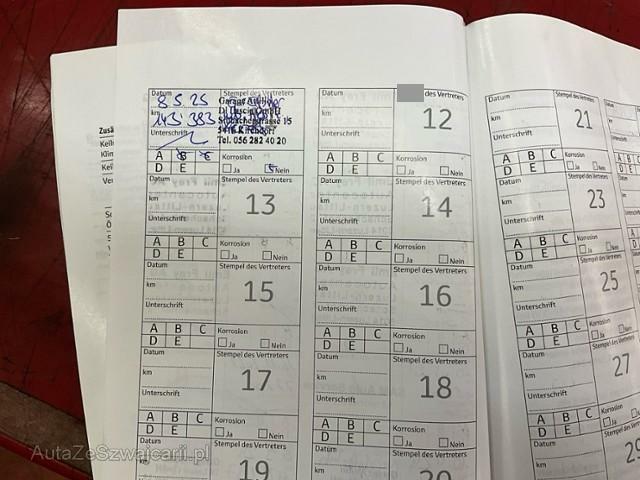 Zusä
Keil
Klim
Keil
Ver
Datum Stempel des Vertreters
8.5.25
km 143 383
Stroppelstrasse 15
5416 Kirchdorf
Unterschrift Tel. 056 282 40 20
A B C Korrosion
D E Ja Nein
Datum des Vertreters
km 12
Unterschrift
A B C Korrosion
D E Ja Nein
21
Unterschrift
A B C Korrosion
D E Ja Nein
Datum Stempel des Vertreters
km 13
Unterschrift
A B C Korrosion
D E Ja Nein
Datum Stempel des Vertreters
km 14
Unterschrift
A B C Korrosion
D E Ja Nein
Datum Stempel des Vertreters
km 23
Unterschrift
A B C Korrosion
D E Ja Nein
Datum Stempel des Vertreters
km 15
Unterschrift
A B C Korrosion
D E Ja Nein
Datum Stempel des Vertreters
km 16
Unterschrift
A B C Korrosion
D E Ja Nein
Datum Stempel des Vertreters
km 25
Unterschrift
A B C Korrosion
D E Ja Nein
Datum Stempel des Vertreters
km 17
Unterschrift
A B C Korrosion
D E Ja Nein
Datum Stempel des Vertreters
km 18
Unterschrift
A B C Korrosion
D E Ja Nein
Datum
km 27
Unterschrift
A B C
D E Ja
Datum Stempel des Vertreters
km 19
Datum Stempel des Vertreters
km 20
Datum
km 29
AutaZeSzwajcarii.pl